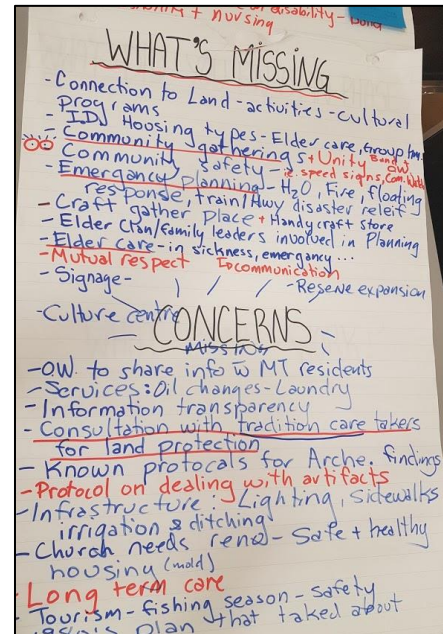 disability-
+ nursing
WHAT'S MISSING
-Connection to Land-activities-cultural
programs
-I.D. Housing types-Elder care, Group hms
-Community gatherings + Unity Band + OW
Community safety-ie. speed signs, Com. Watch
-Emergancy planning-H2O, Fire, floating
response, train/Hwy disaster releif
-Craft gather place + Handycraft store
-Elder Clan/family leaders involved in Planning
-Elder care-in sickness, emergency...
-Mutual respect communication
-Signage-
-Reserve expansion
-Culture centre
CONCERNS
MISSING
-O.W. to share info w MT residents
-Services: Oil changes-Laundry
-Information transparency
-Consultation with tradition care takers
for land protection
-Known protocals for Arche. findings
-Protocol on dealing with artifacts
-Infrastructure: Lighting, Sidewalks
irrigation & ditching
-Church needs reno-Safe + healthy
housing (mold)
-Long term care
-Tourism-fishing season-safety
plan that taked about